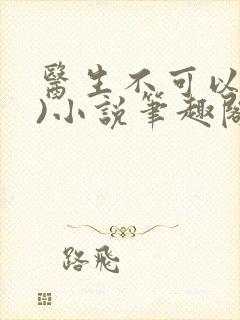 醫生不可以
)小説筆趣閣
路飛